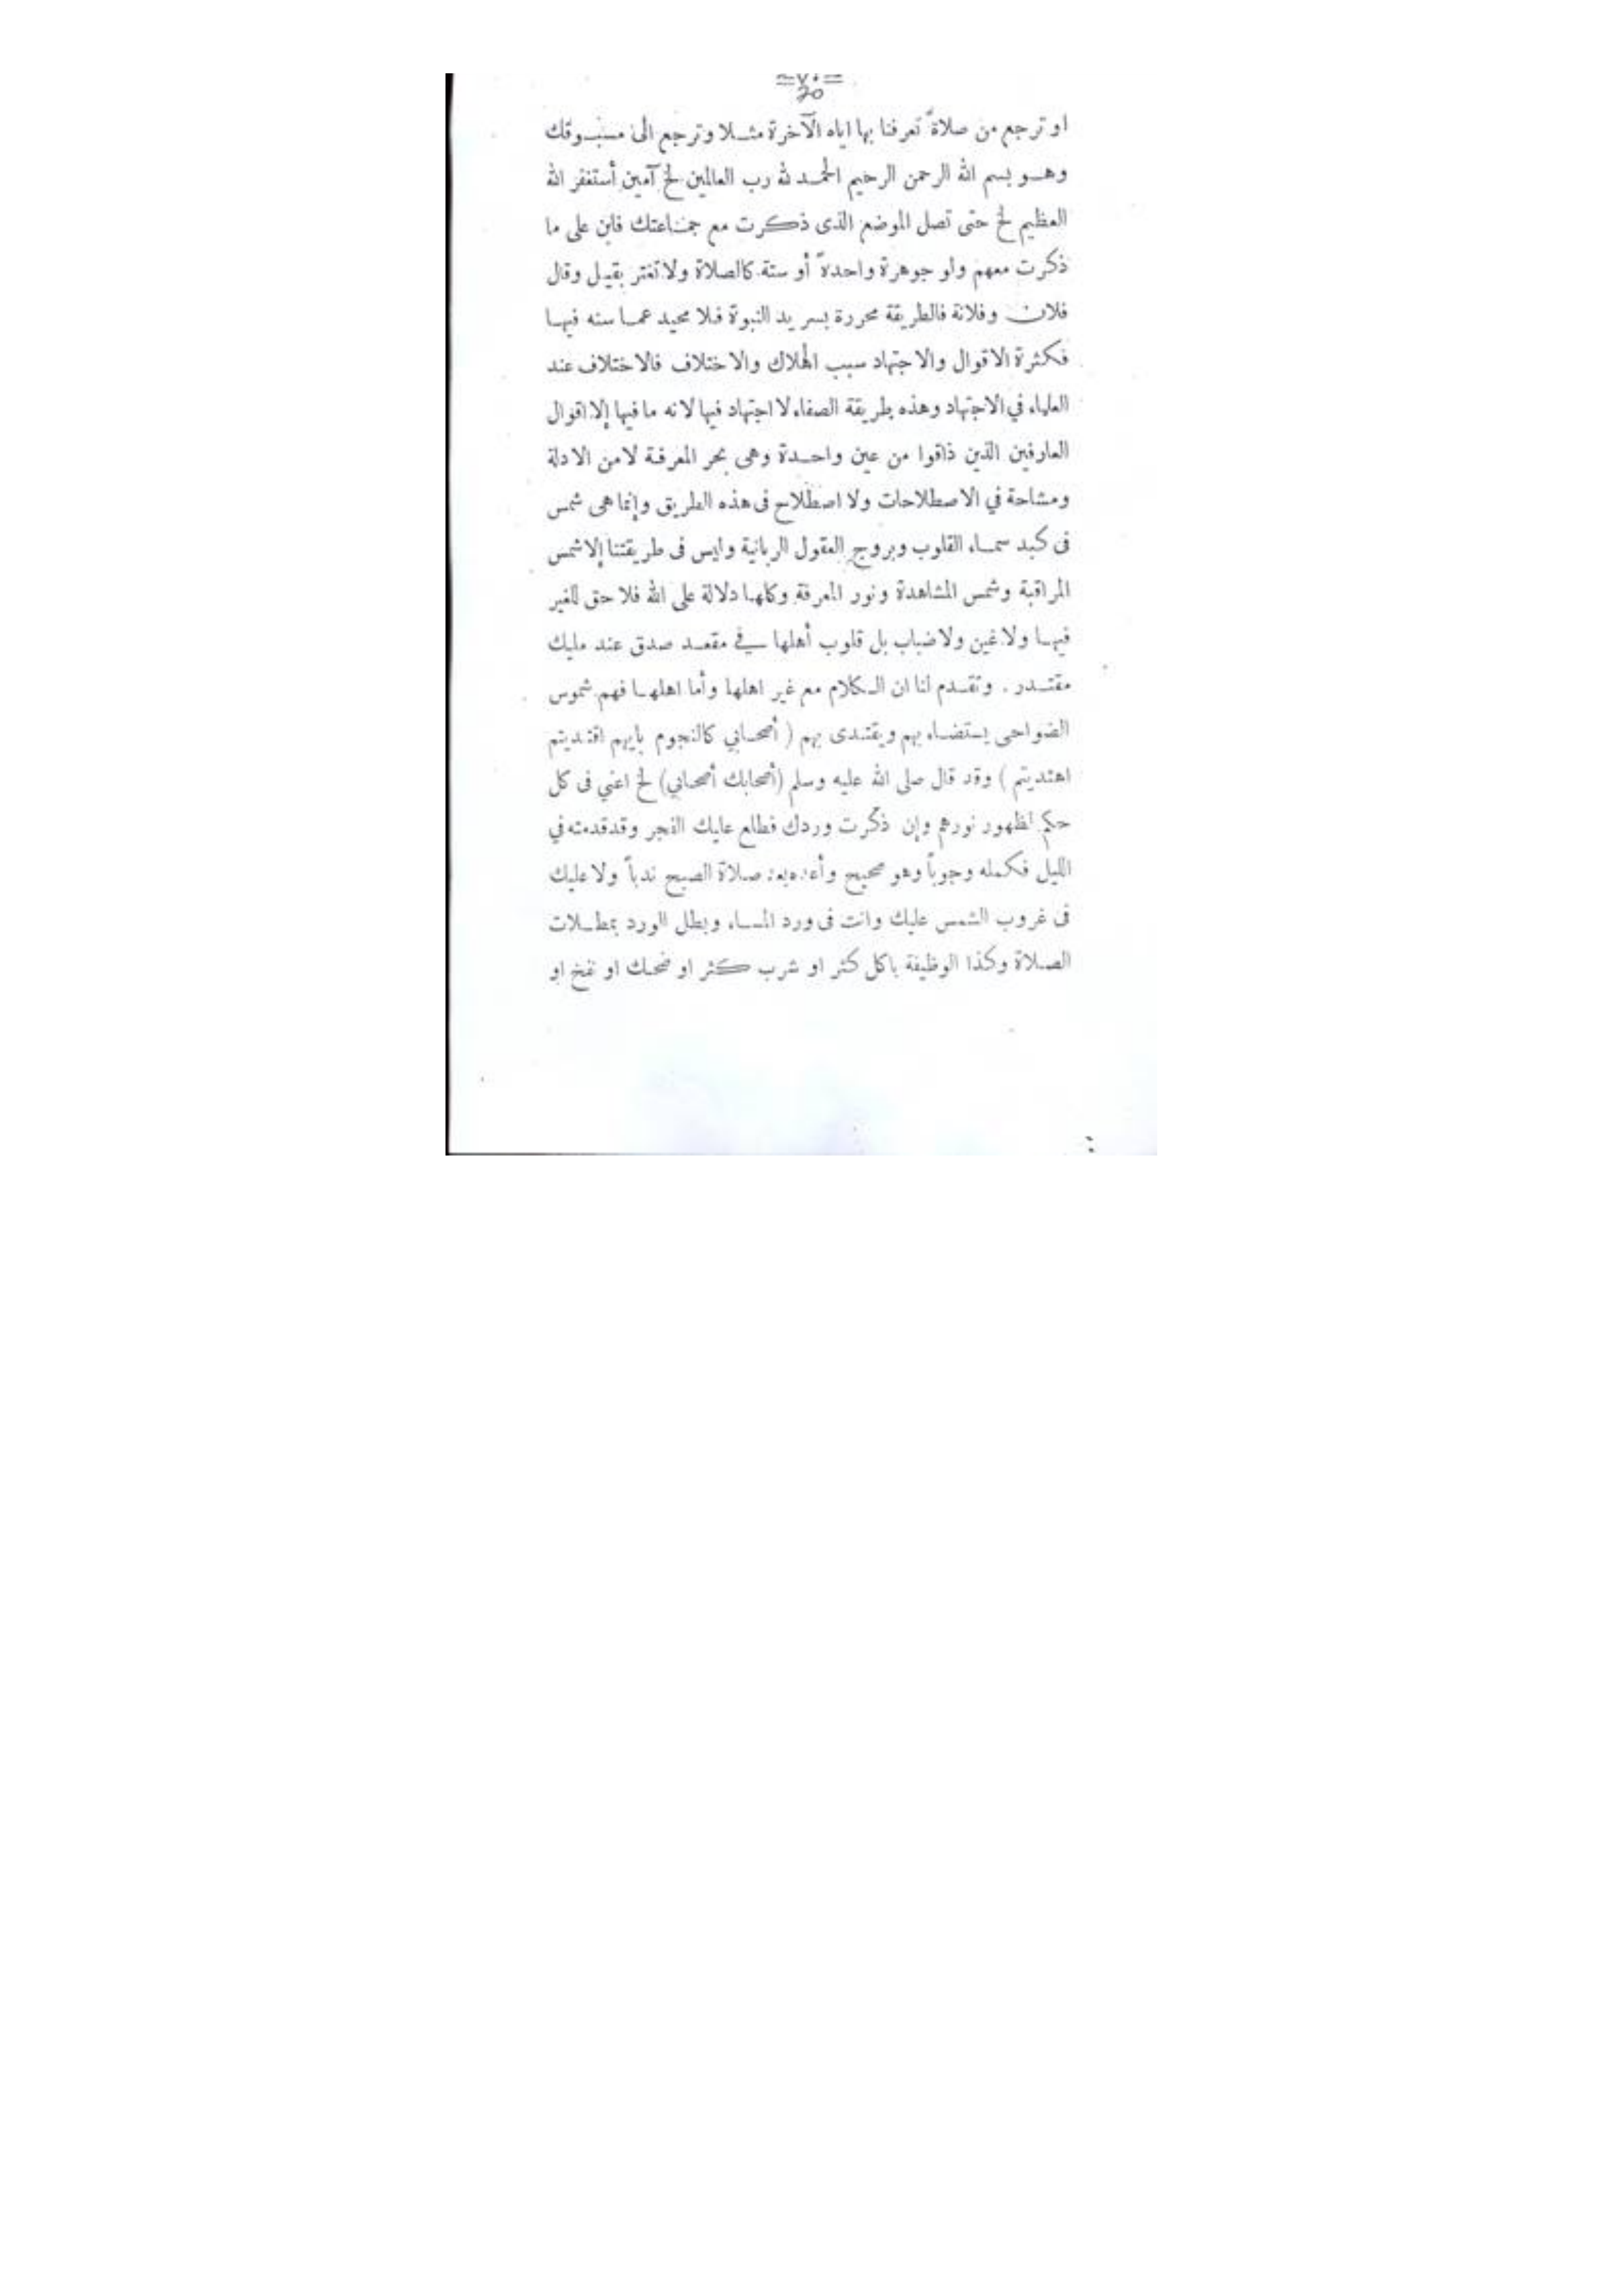 =٧٠=
70
او ترجع من صلاةً تعرفنا بها اياه الآخرة مثلا وترجع الى مسبوقك
وهو بسم الله الرحمن الرحيم الحمد لله رب العالمين لخ آمين أستغفر الله
العظيم لخ حتى تصل الموضع الذى ذكرت مع جماعتك فابن على ما
ذكرت معهم ولو جوهرة واحدةً أو ستة كالصلاة ولا تغتر بقيل وقال
فلان وفلانة فالطريقة محررة بسر يد النبوة فلا محيد عما سنه فيها
فكثرة الاقوال والاجتهاد سبب الهلاك والاختلاف فالاختلاف عند
العلماء في الاجتهاد وهذه طريقة الصفاء لا اجتهاد فيها لانه ما فيها إلا اقوال
العارفين الذين ذاقوا من عين واحدة وهى بحر المعرفة لا من الادلة
ومشاحة في الاصطلاحات ولا اصطلاح فى هذه الطريق وإنما هى شمس
فى كبد سماء القلوب وبروج العقول الربانية وليس فى طريقتنا إلا شمس
المراقبة وشمس المشاهدة ونور المعرفة وكلها دلالة على الله فلا حق للغير
فيها ولا غين ولا ضباب بل قلوب أهلها في مقعد صدق عند مليك
مقتدر . وتقدم لنا ان الكلام مع غير اهلها وأما اهلها فهم شموس
الضواحى يستضاء بهم ويقتدى بهم ( أصحابي كالنجوم بايهم اقتديتم
اهتديتم ) وقد قال صلى الله عليه وسلم (أصحابك أصحابي) لخ اعني فى كل
حكم لظهور نورهم وإن ذكرت وردك فطلع عليك الفجر وقد قدمته في
الليل فكمله وجوباً وهو صحيح وأعده بعد صلاة الصبح ندباً ولا عليك
فى غروب الشمس عليك وانت فى ورد المساء وبطل الورد بمطلات
الصلاة وكذا الوظيفة باكل كثر او شرب كثر او ضحك او نفخ او